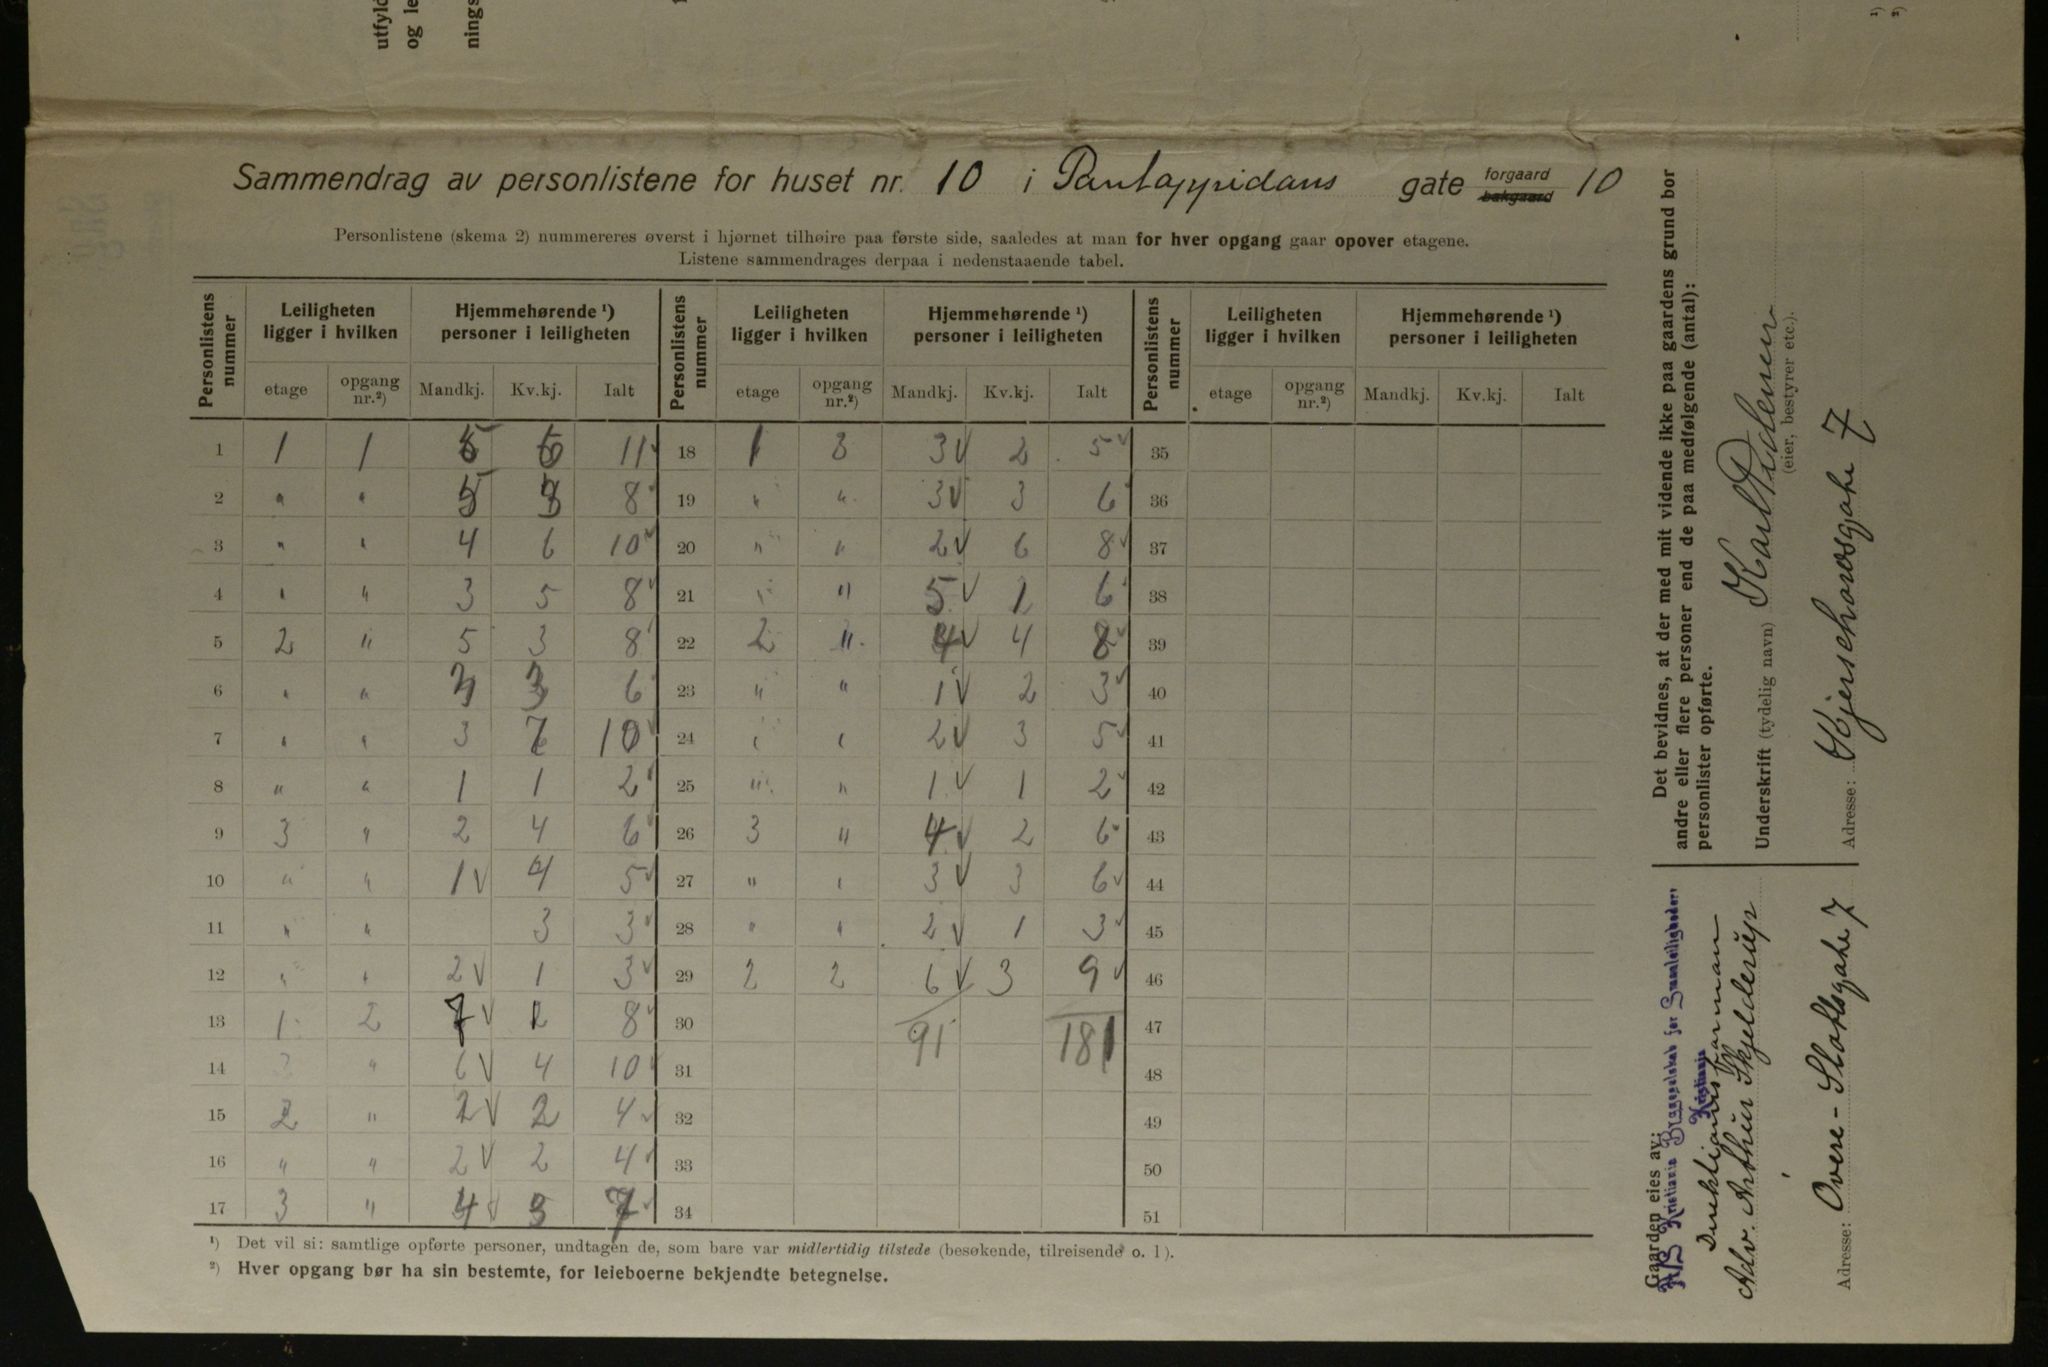 utfyld
og le
nings
¹)
²)
Sammendrag av personlistene for huset nr. 10 i Pantappridans gate forgaard bakgaard 10
Personlistene (skema 2) nummereres øverst i hjørnet tilhøire paa første side, saaledes at man for hver opgang gaar opover etagene.
Listene sammendrages derpaa i nedenstaaende tabel.
Personlistens nummer | Leiligheten ligger i hvilken | Hjemmehørende ¹) personer i leiligheten | Personlistens nummer | Leiligheten ligger i hvilken | Hjemmehørende ¹) personer i leiligheten | Personlistens nummer | Leiligheten ligger i hvilken | Hjemmehørende ¹) personer i leiligheten
etage | opgang nr.²) | Mandkj. | Kv.kj. | Ialt | etage | opgang nr.²) | Mandkj. | Kv.kj. | Ialt | etage | opgang nr.²) | Mandkj. | Kv.kj. | Ialt
1 | 1 | 1 | 5 | 6 | 11 | 18 | 1 | 3 | 3 | 2 | 5 | 35
2 | " | " | 5 | 3 | 8 | 19 | " | " | 3 | 3 | 6 | 36
3 | " | " | 4 | 6 | 10 | 20 | " | " | 2 | 6 | 8 | 37
4 | " | " | 3 | 5 | 8 | 21 | " | " | 5 | 1 | 6 | 38
5 | 2 | " | 5 | 3 | 8 | 22 | 2 | " | 4 | 4 | 8 | 39
6 | " | " | 3 | 3 | 6 | 23 | " | " | 1 | 2 | 3 | 40
7 | " | " | 3 | 7 | 10 | 24 | " | " | 2 | 3 | 5 | 41
8 | " | " | 1 | 1 | 2 | 25 | " | " | 1 | 1 | 2 | 42
9 | 3 | " | 2 | 4 | 6 | 26 | 3 | " | 4 | 2 | 6 | 43
10 | " | " | 1 | 4 | 5 | 27 | " | " | 3 | 3 | 6 | 44
11 | " | " | | 3 | 3 | 28 | " | " | 2 | 1 | 3 | 45
12 | " | " | 2 | 1 | 3 | 29 | 2 | 2 | 6 | 3 | 9 | 46
13 | 1 | 2 | 7 | 1 | 8 | 30 | | | 91 | | 181 | 47
14 | | " | 6 | 4 | 10 | 31 | | | | | | 48
15 | 2 | " | 2 | 2 | 4 | 32 | | | | | | 49
16 | " | " | 2 | 2 | 4 | 33 | | | | | | 50
17 | 3 | " | 4 | 3 | 7 | 34 | | | | | | 51
¹) Det vil si: samtlige opførte personer, undtagen de, som bare var midlertidig tilstede (besøkende, tilreisende o. l).
²) Hver opgang bør ha sin bestemte, for leieboerne bekjendte betegnelse.
Det bevidnes, at der med mit vidende ikke paa gaardens grund bor
andre eller flere personer end de paa medfølgende (antal):
personlister opførte.
Underskrift (tydelig navn) Karl Pedersen
(eier, bestyrer etc.).
Adresse: 7
Gaarden eies av:
A/S Kristiania Byggeselskab for Smaaleiligheder,
Kristiania
Direktionsformann
Adv. Arthur Skjelderup
Adresse: Övere-Slotsgate 7